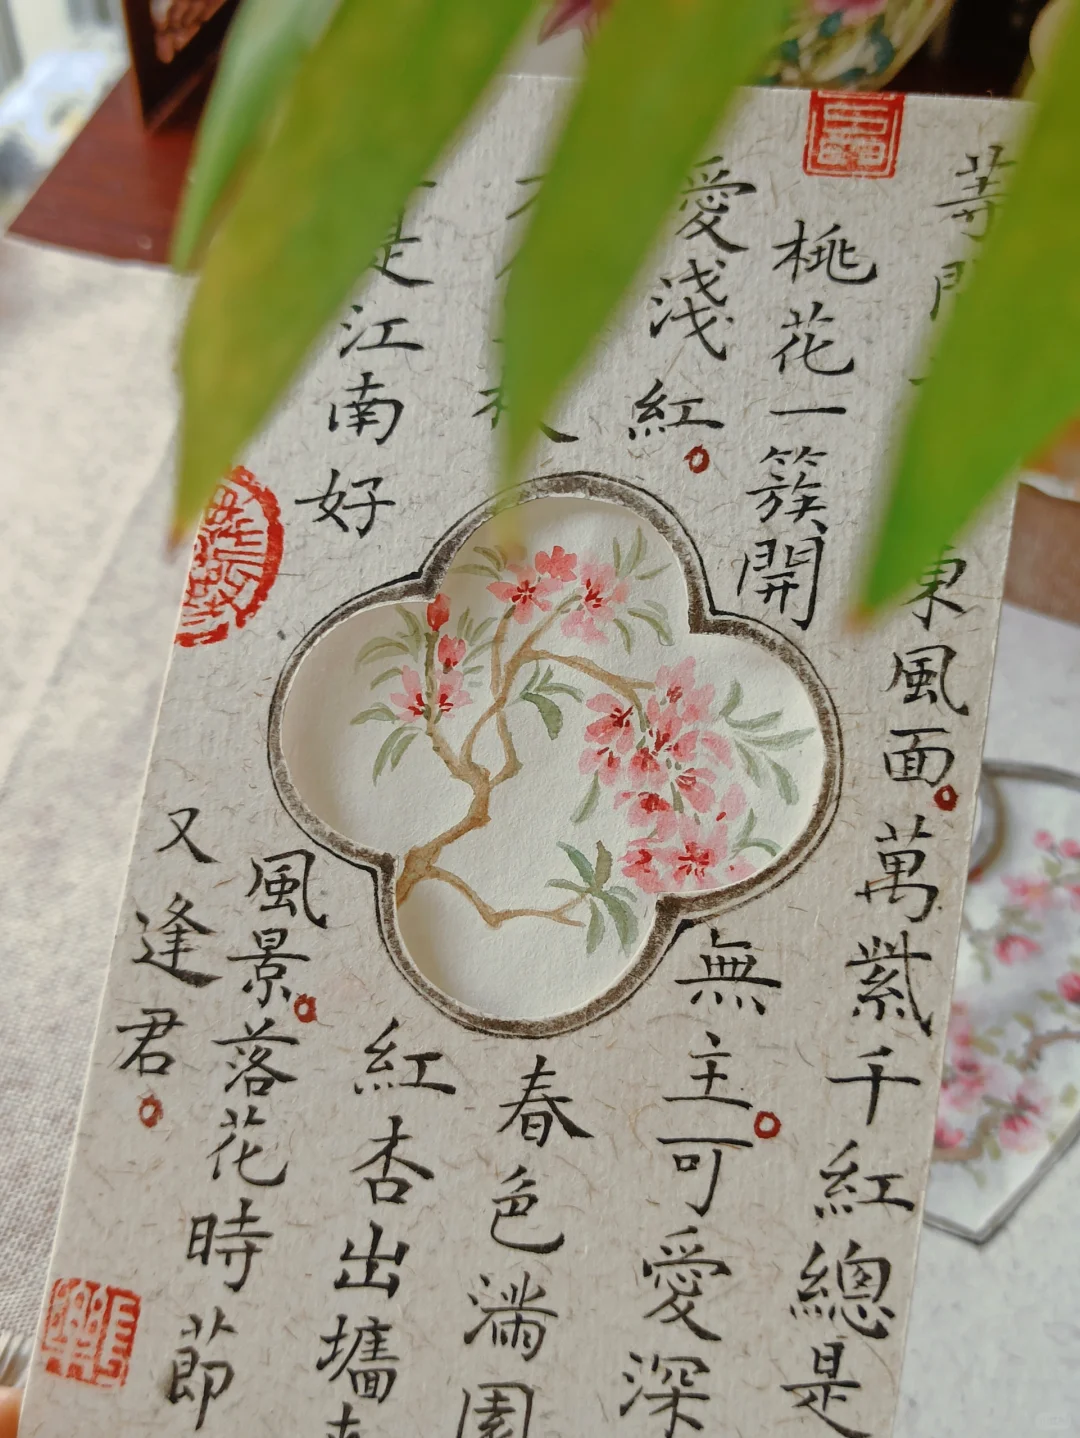 等東風面。萬紫千紅總是
桃花一簇開無主。可愛深
愛淺紅。春色滿園
紅杏出墻
是江南好風景。落花時節
又逢君。